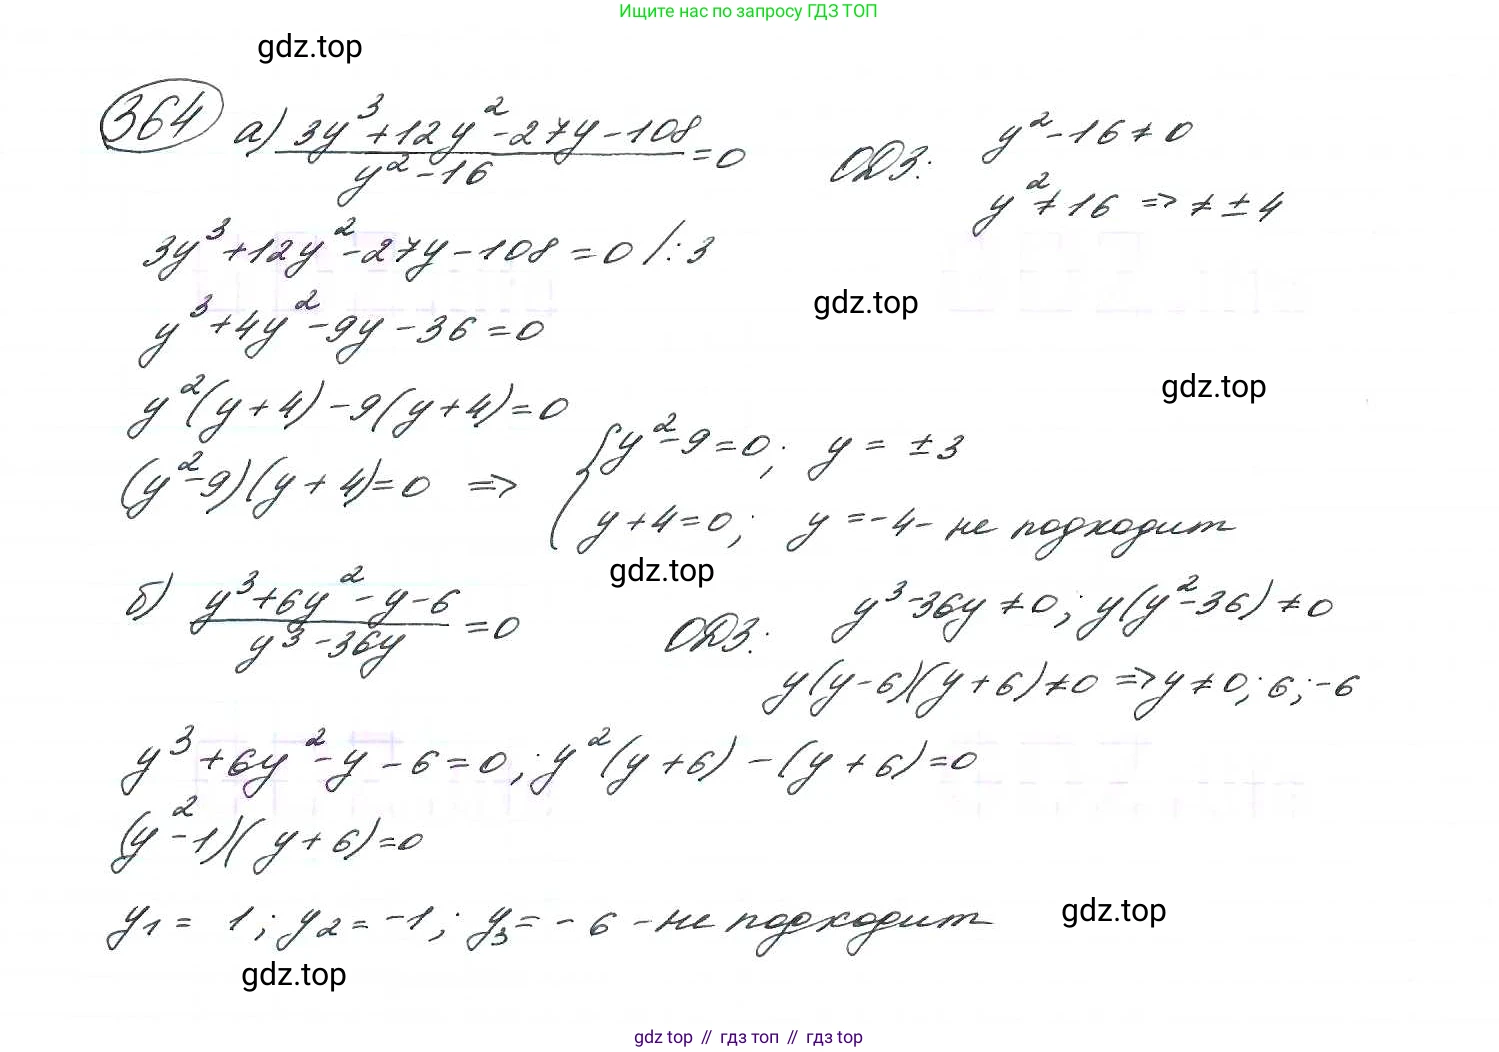 Ищите нас по запросу ГДЗ ТОП
gdz.top
364 а) (3y³+12y²-27y-108)/(y²-16) =0 ОДЗ: y²-16≠0
y²≠16 => ≠±4
3y³+12y²-27y-108=0 /:3
gdz.top
y³+4y²-9y-36=0
gdz.top
y²(y+4)-9(y+4)=0
(y²-9)(y+4)=0 => { y²-9=0; y=±3
y+4=0; y=-4- не подходит
gdz.top
б) (y³+6y²-y-6)/(y³-36y) =0 ОДЗ: y³-36y≠0; y(y²-36)≠0
y(y-6)(y+6)≠0 => y≠0; 6; -6
y³+6y²-y-6=0; y²(y+6)-(y+6)=0
(y²-1)(y+6)=0
y₁= 1; y₂=-1; y₃=-6 -не подходит
gdz.top
gdz.top
gdz top // гдз топ // гдз top